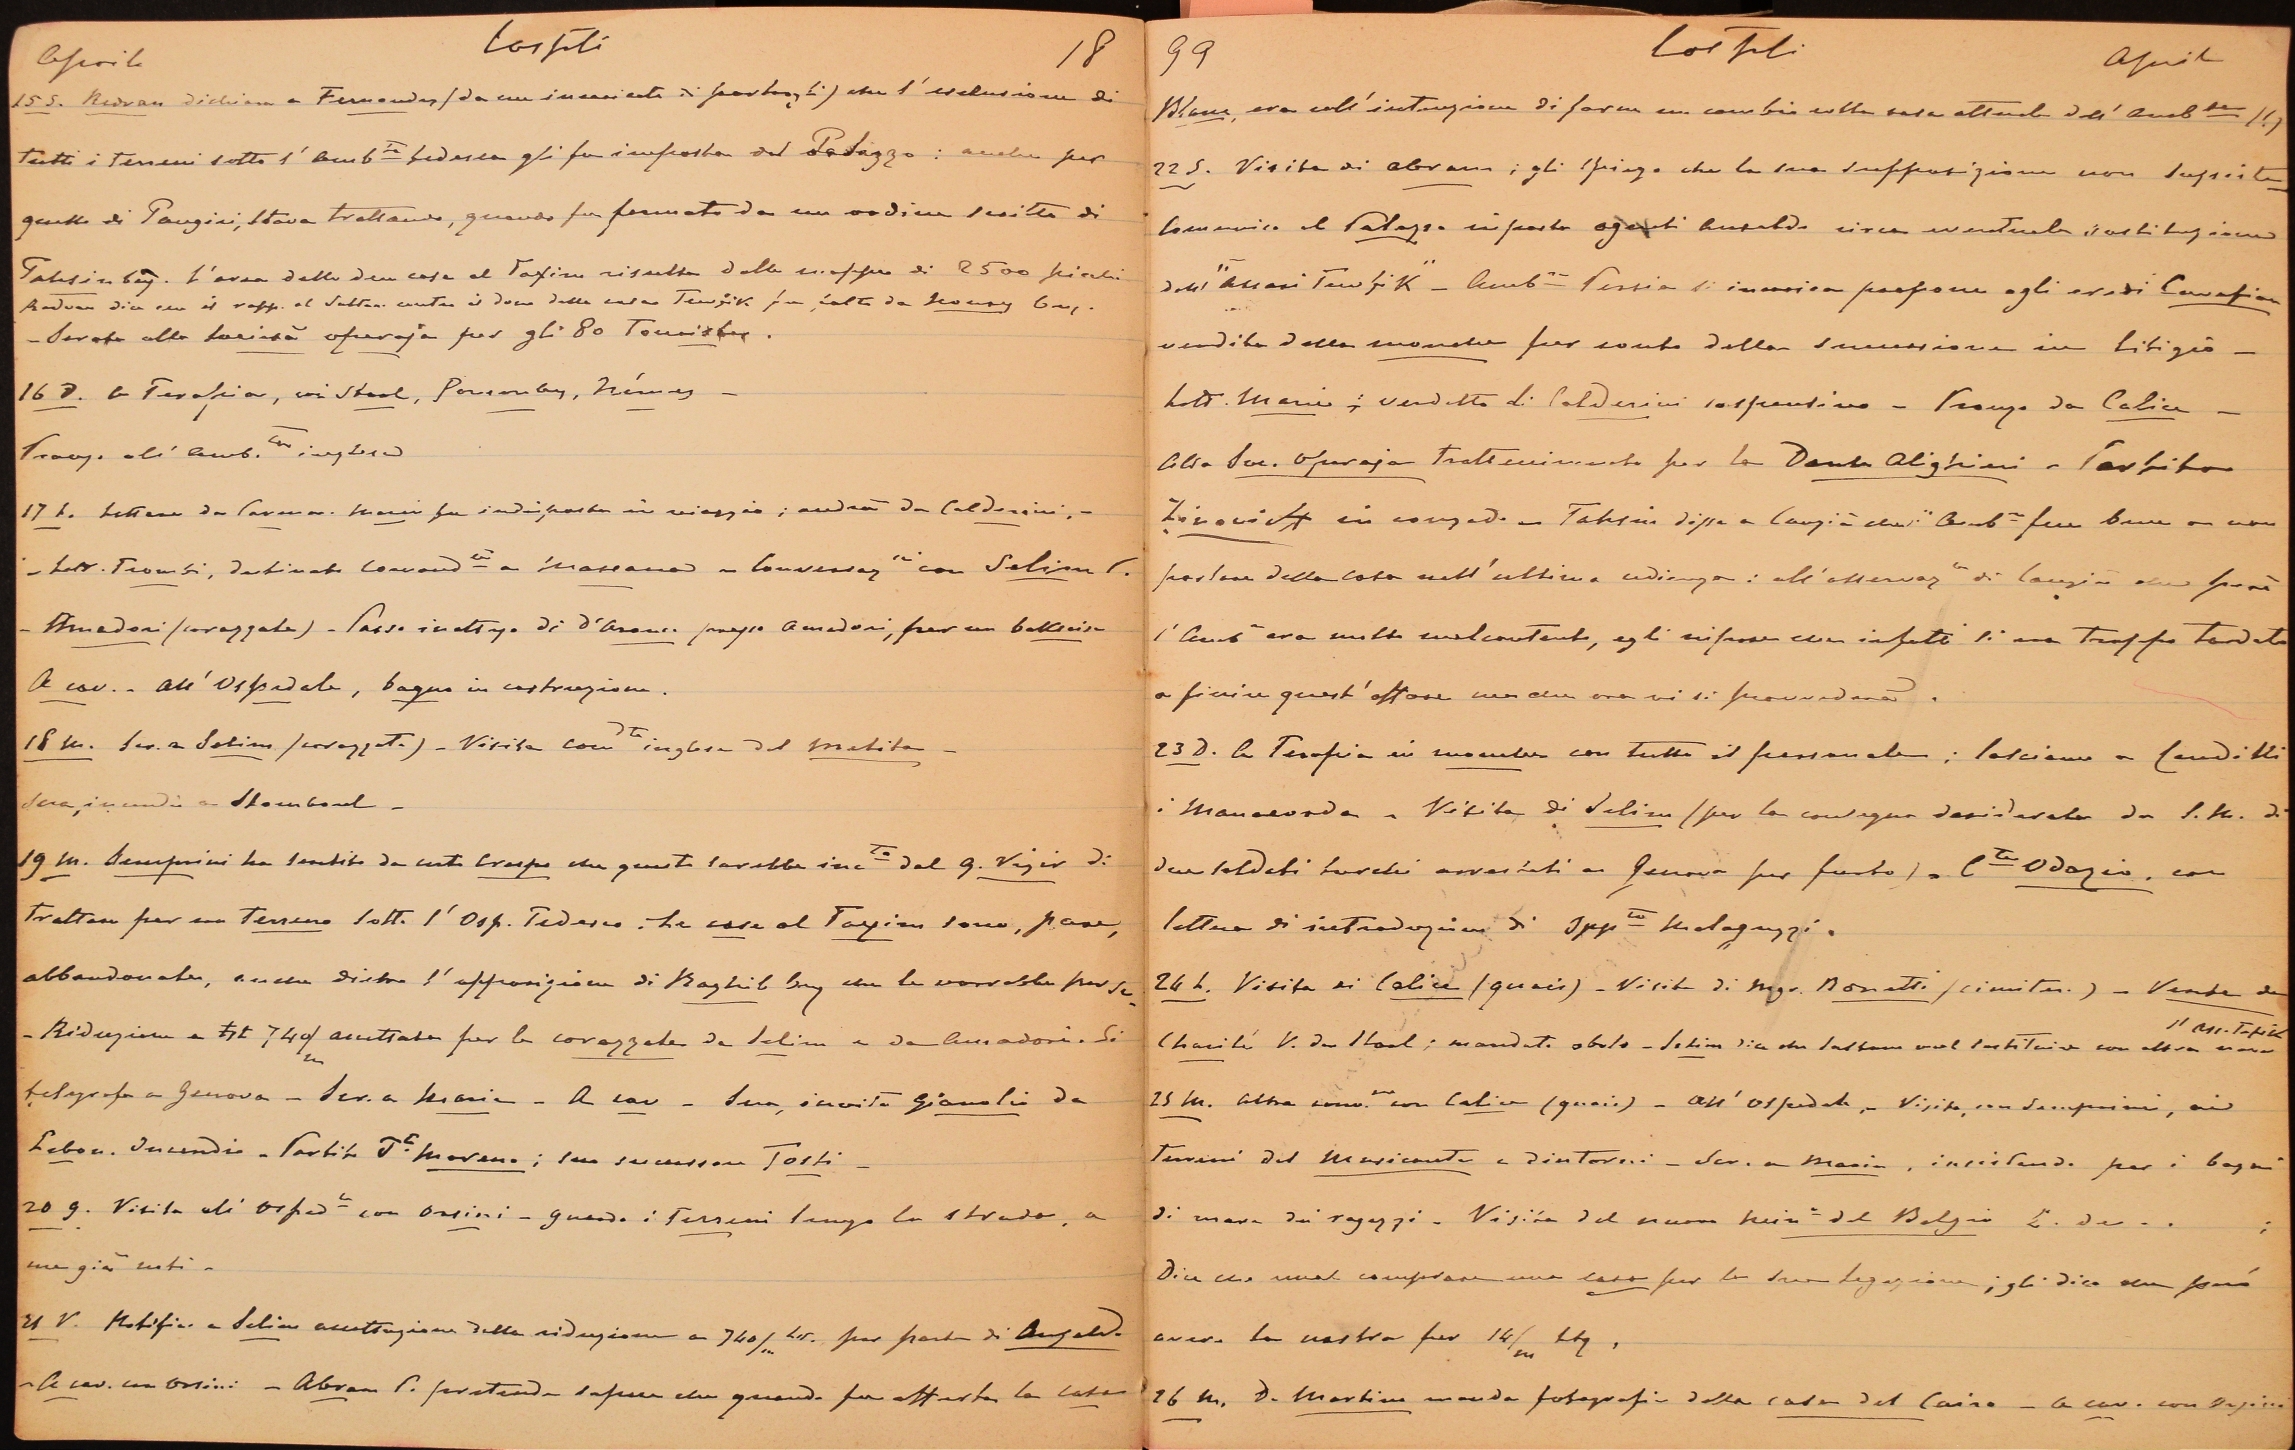 Aprile Cospoli 18
15 S. Redvan dichiara a Fernandez (da me incaricato di portargli) che l'esclusione di
tutti i terreni sotto l'Amb.ta tedesca gli fu imposta dal Palazzo: anche per
quello di Pangiri, stava trattando, quando fu fermato da un ordine scritto di
Tahsin bey. L'area delle due case al Taxim risulta dalla mappa di 2500 picchi
Redvan dice che il rapp. al Sultano contro il dono della casa Tewfik fu fatto da bey.
- Serata alla Società operaja per gli 80 Touristes.
16 D. A Terapia, coi Staal, Ponsonby, Némes -
Pranzo all'Amb.ta inglese
17 L. Lettere da Maria fu indisposta in viaggio; andrà da Calderini. -
- Lett. Trombi, destinato comand.te a Massaua - Conversaz.ni con Selim P.
- Amadori (corazzata) - Passo inatteso di d'Aronco presso Amadori, per un
A cav. - All'Ospedale, bagno in costruzione.
18 M. Scr. a Selim (corazzata) - Visita com.te inglese del Melita -
Sera, incendio a Stamboul -
19 M. Semprini ha sentito da certo Crespo che questi sarebbe inc.to dal G. Vizir di
trattare per un terreno sotto l'Osp. Tedesco. Le case al Taxim sono, pare,
abbandonate, anche dietro l'opposizione di Raghib bey che le vorrebbe per se.
- Riduzione a Lst 740/m accettata per la corazzata da Selim e da Amadori. Si
telegrafa a Genova - Scr. a Maria - A cav - Sera, invito Gianolio da
Lebon. Incendio - Partito T.e Moreno; suo successore Tosti -
20 G. Visita all'Osped.e con Orsini - guardo i terreni lungo la strada, a
me già noti -
21 V. Notifico a Selim accettazione della riduzione a 740/m Lst. per parte di Ansaldo
- A cav. con Orsini - Abram P. pretende sapere che quando fu offerta la casa
99 Cospoli Aprile
era coll'intenzione di farne un cambio colla casa attuale dell'Amb.ta (!)
22 S. Visita di Abram; gli spiego che la sua supposizione non sussiste
Comunico al Palazzo risposta Ansaldo circa eventuale sostituzione
dell'"Assari Tewfik" - Amb.re Persia si incarica proporre agli eredi
vendita della moschea per conto della successione in litigio -
Lett. Maria; verdetto di Calderini sospensivo - Pranzo da Calice -
Alla Soc. Operaja trattenimento per la Dante Alighieri - Partito
Zinovieff in congedo - Tahsin disse a Cangià che l'Amb.re fece bene a non
parlare della casa nell'ultima udienza: all'osservaz.e di Cangià che però
l'Amb.re era molto malcontento, egli rispose che infatti si era troppo tardato
a finire quest'affare ma che ora vi si provvederà.
23 D. A Terapia in mouche con tutto il personale; lasciamo a Candilli
i Manacorda - Visita di Selim (per la consegna desiderata da S.M. di
due soldati turchi arrestati a Genova per furto) - C.te Odazio, con
lettera di introduzione di Malaguzzi.
24 L. Visita di Calice (quais) - Visita di Mgr. Bonetti (cimiter.) - Vente de
Charité V. de Staal; mandato obolo - Selim dice che Sultano vuol sostituire con altra nave l'Ass. Tefik
25 M. Altra conv.ne con Calice (quais) - All'Ospedale, - Visita, con Semprini, ai
terreni del Musicante e dintorni - Scr. a Maria, insistendo per i bagni
di mare dei ragazzi - Visita del nuovo Min.o del Belgio E. de . . ;
Dice che vuol comprare una casa per la sua legazione; gli dico che può
avere la nostra per 14/m Ltq.
26 M. De Martino manda fotografie della casa del Cairo - A cav. con Orsini